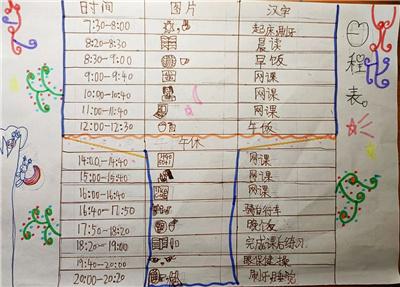 时间 图片 汉字
7:30-8:00 起床,刷牙
8:20-8:30 晨读
8:30-9:00 早饭
9:00-9:40 网课
10:00-10:40 网课
11:00-11:40 网课
12:00-12:30 午饭
午休
14:00-14:40 网课
15:00-15:40 网课
16:00-16:40 网课
16:40-17:50 骑自行车
17:50-18:20 晚饭
18:20-19:00 完成课后练习
19:40-20:00 眼保健操
20:00-20:20 刷牙
日程表。